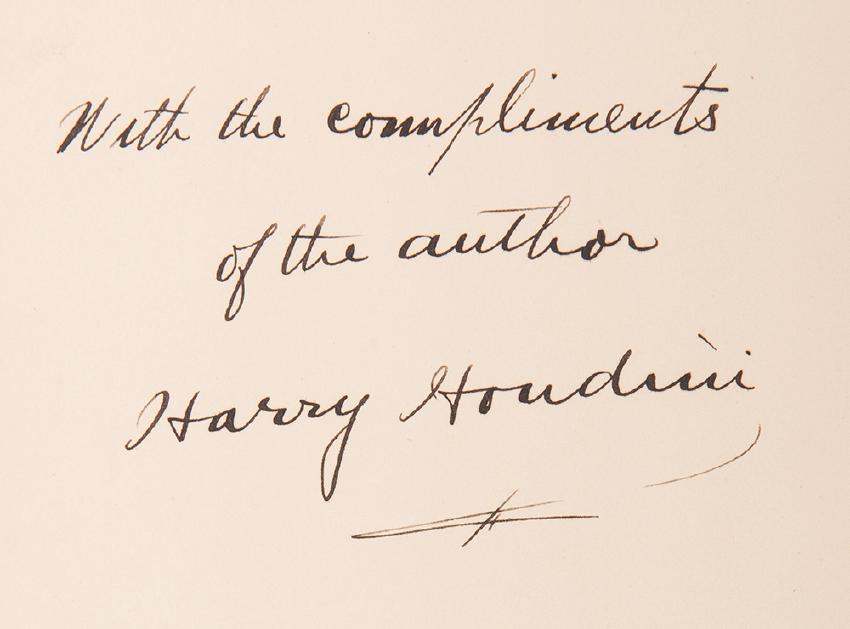 With the compliments
of the author
Harry Houdini